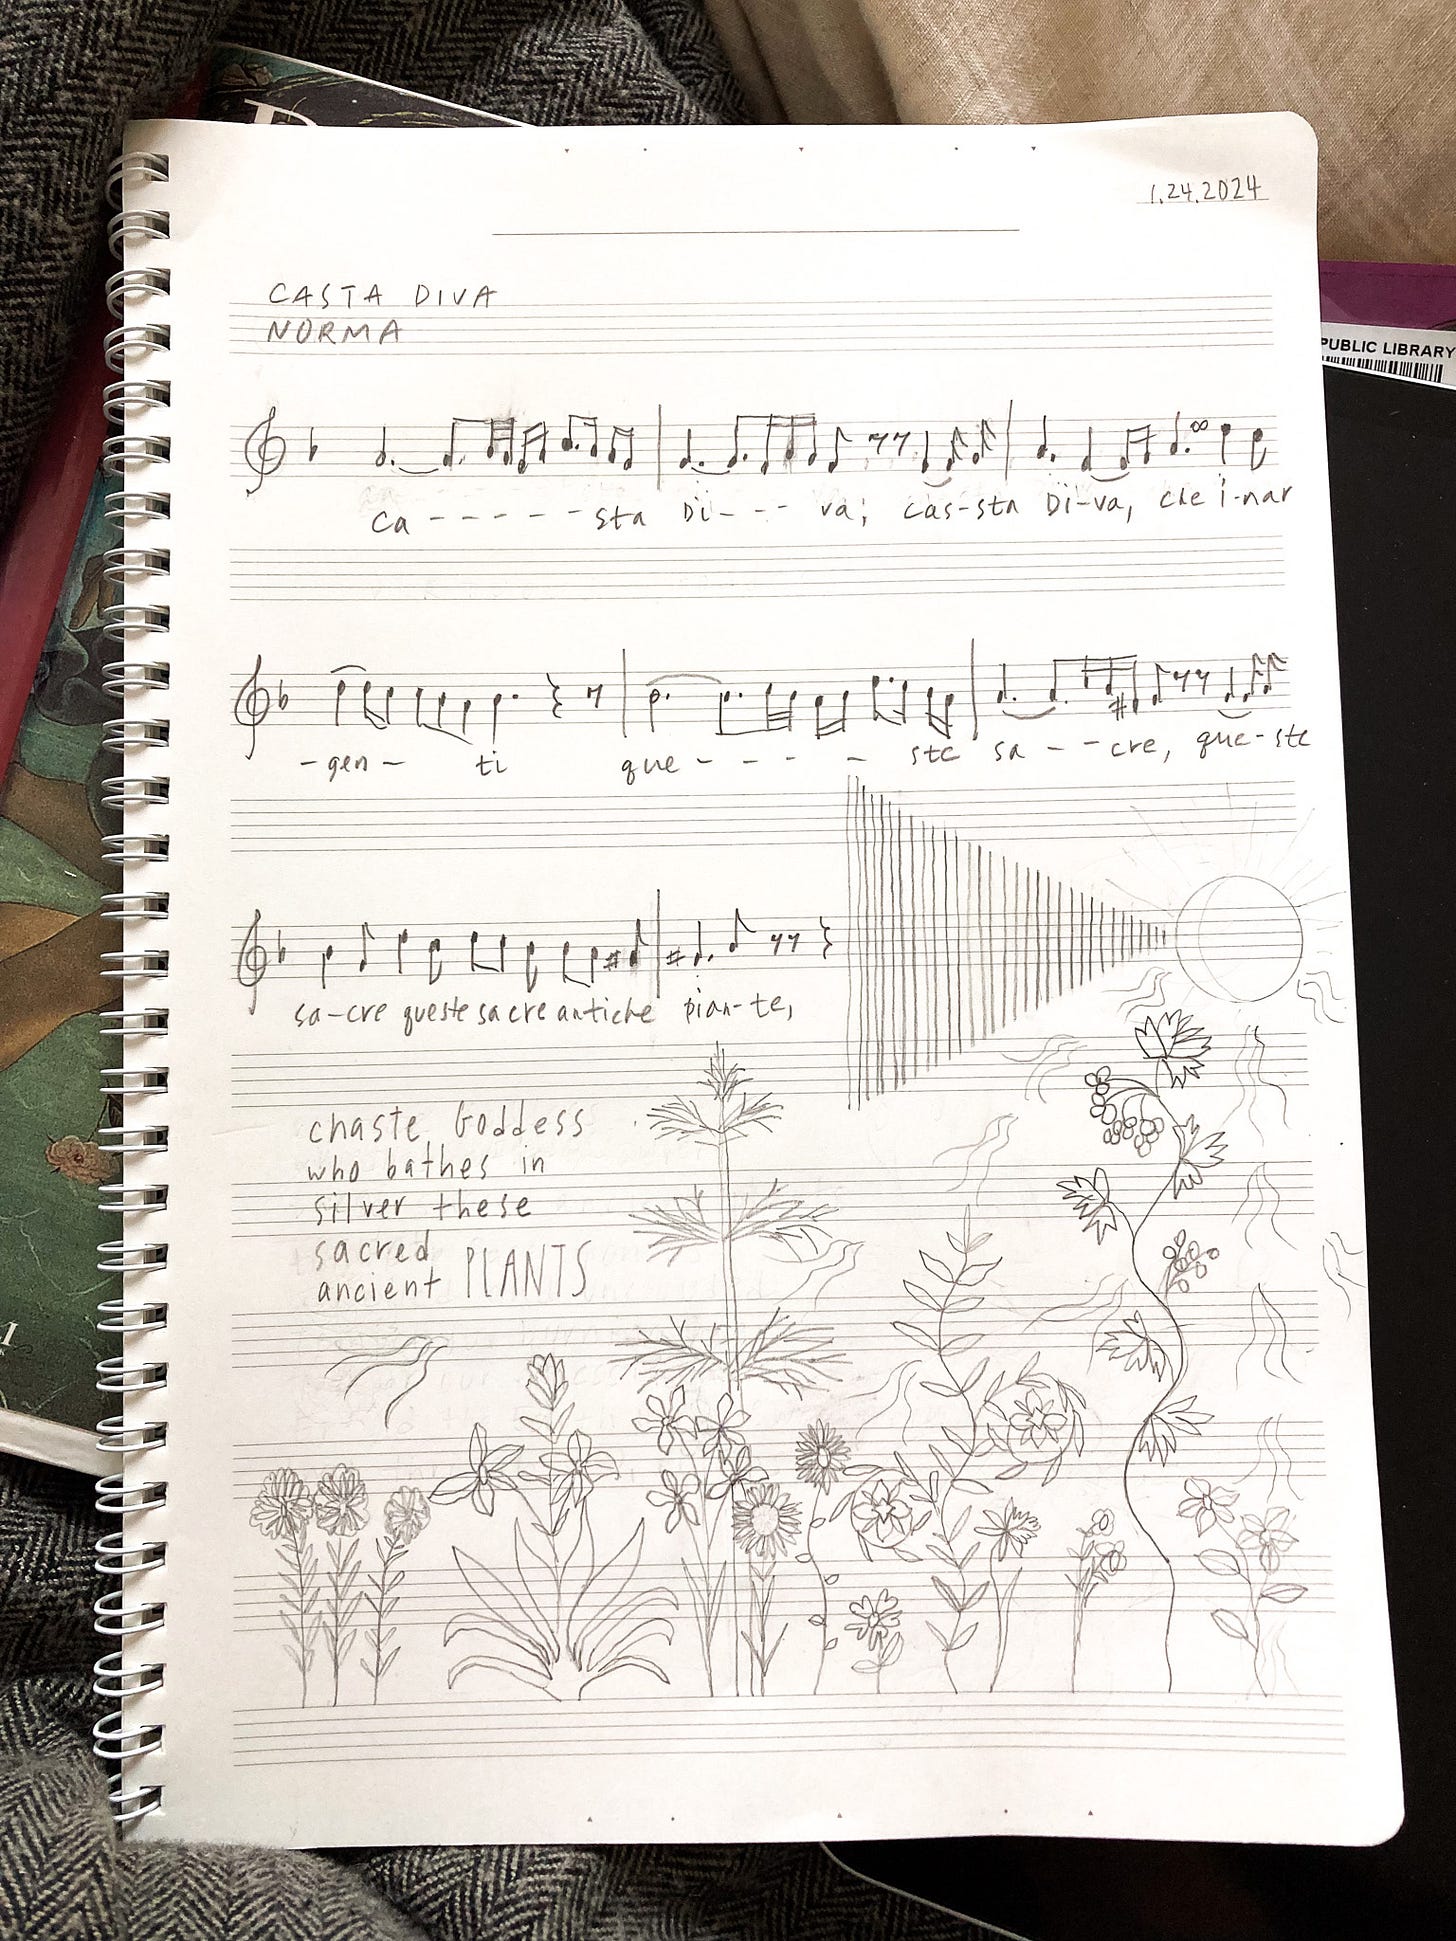 1.24.2024
CASTA DIVA
NORMA
PUBLIC LIBRARY
Ca - - - - - - sta Di - - - va; cas-sta Di-va, che i-nar
-gen- ti que - - - - ste sa - - cre, que-ste
sa-cre queste sacre antiche pian-te,
chaste Goddess
who bathes in
silver these
sacred
ancient PLANTS
1